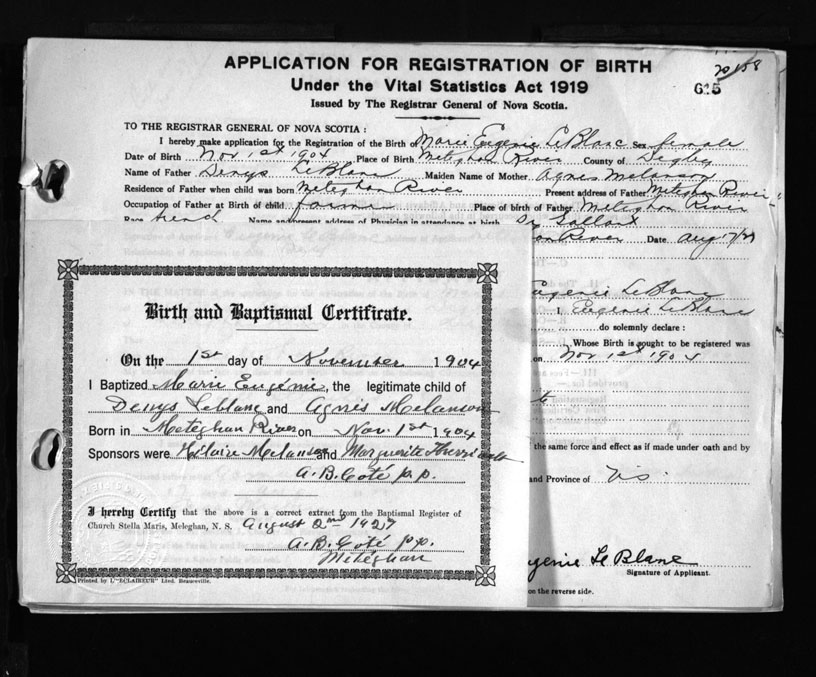 APPLICATION FOR REGISTRATION OF BIRTH
Under the Vital Statistics Act 1919
Issued by The Registrar General of Nova Scotia.
615
TO THE REGISTRAR GENERAL OF NOVA SCOTIA :
I hereby make application for the Registration of the Birth of Marie Eugenie LeBlanc Sex female
Date of Birth Nov 1st 1904 Place of Birth Meteghan River County of Digby
Name of Father Denys LeBlanc Maiden Name of Mother Agnes Melanson
Residence of Father when child was born Meteghan River Present address of Father Meteghan River
Occupation of Father at Birth of child farmer Place of birth of Father Meteghan River
Race french Name and present address of Physician in attendance at birth Dr
River Date Aug
Eugenie LeBlanc
I, Eugenie LeBlanc
do solemnly declare :
Whose Birth is sought to be registered was
on Nov 1st 1904
the same force and effect as if made under oath and by
and Province of
Eugenie LeBlanc
Signature of Applicant.
on the reverse side.
Birth and Baptismal Certificate.
On the 1st day of November 1904
I Baptized Marie Eugénie, the legitimate child of
Denys Leblanc and Agnès Melanson
Born in Meteghan River on Nov. 1st 1904
Sponsors were Hilaire Melanson and Marguerite
A.B. Coté p.p.
I hereby Certify that the above is a correct extract from the Baptismal Register of
Church Stella Maris, Meteghan, N. S. August 2nd 1927
A.B. Coté p.p.
Meteghan
Printed by L'"ECLAIREUR" Lted. Beauceville.